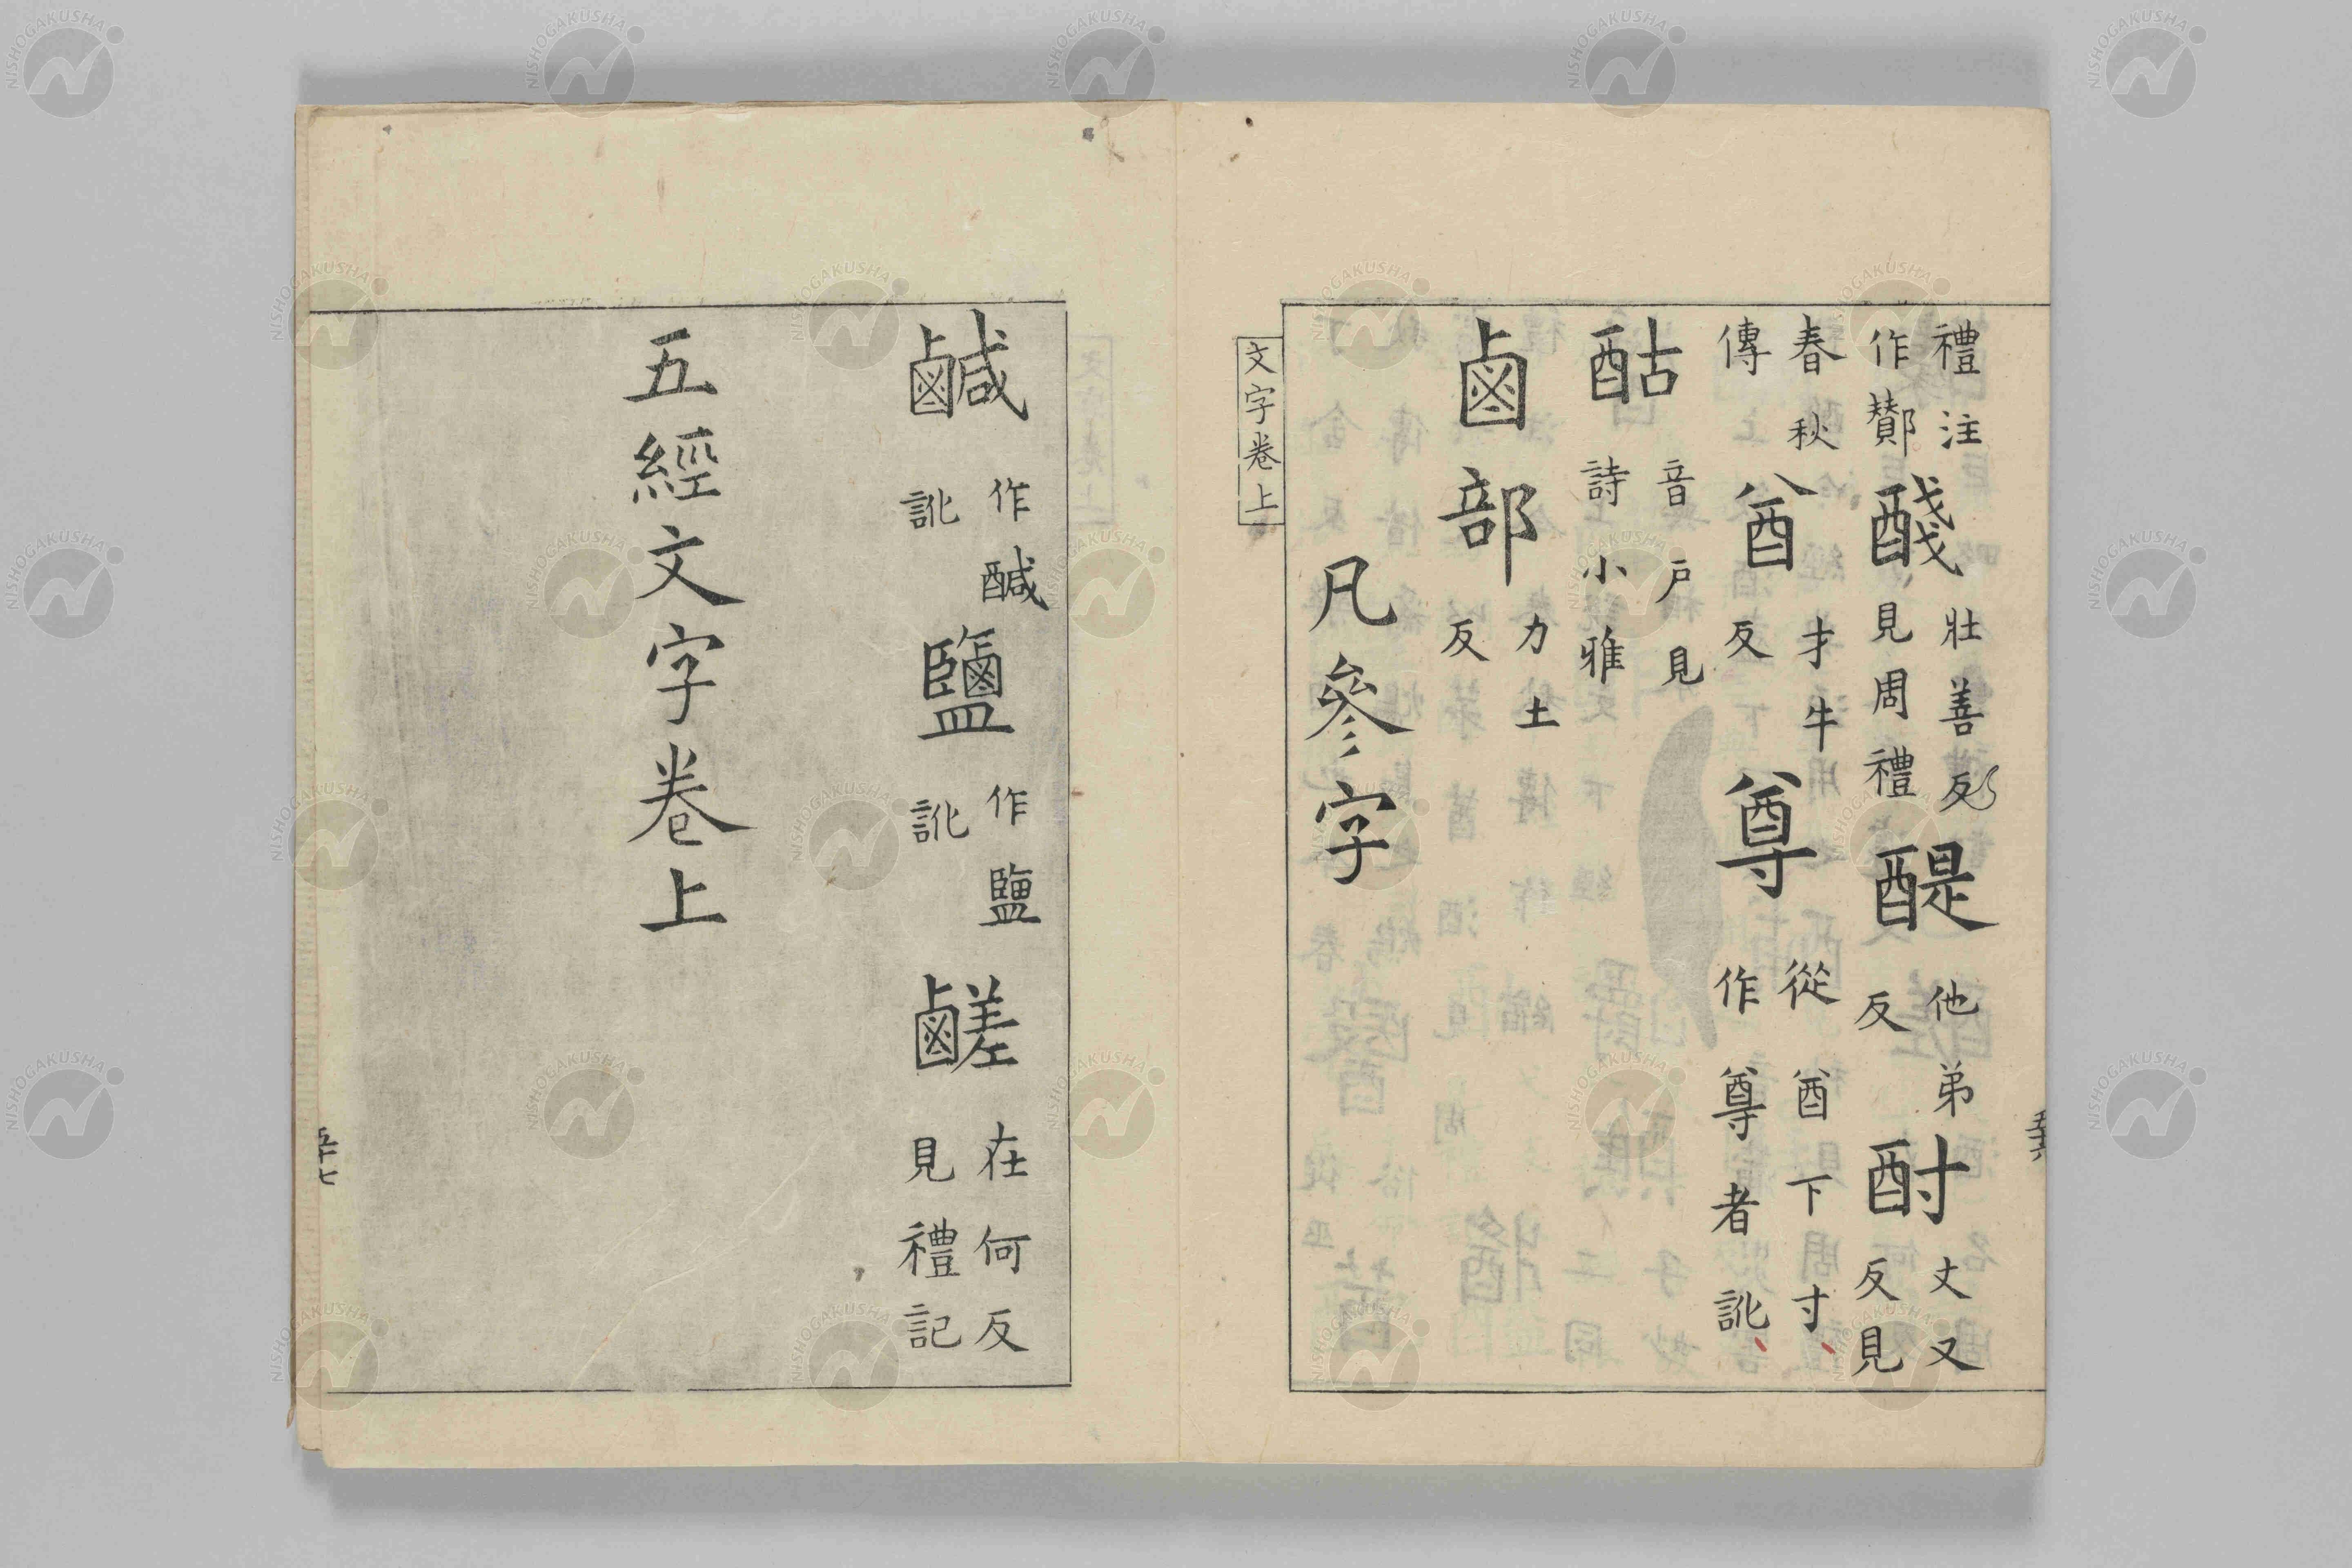 禮注作酇醆壯善反見周禮醍他弟反酎丈又反見
春秋傳酋才牛反尊從酋下寸作尊者訛
酤音戶見詩小雅
鹵部力土反
凡參字
文字卷上
五十六
鹹作醎訛鹽作訛鹺在何反見禮記
五經文字卷上
五十七
NISHOGAKUSHA